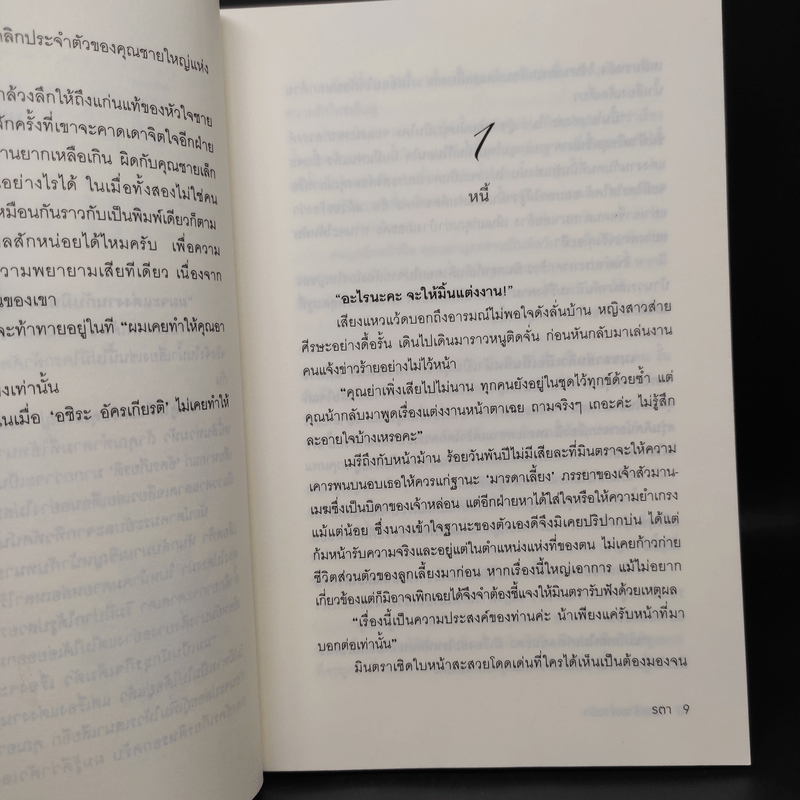 ลิกประจำตัวของคุณชายใหญ่แห่ง
ล้วงลึกให้ถึงแก่นแท้ของหัวใจชาย
สักครั้งที่เขาจะคาดเดาจิตใจอีกฝ่าย
านยากเหลือเกิน ผิดกับคุณชายเล็ก
นอย่างไรได้ ในเมื่อทั้งสองไม่ใช่คน
หมือนกันราวกับเป็นพิมพ์เดียวก็ตาม
ลสักหน่อยได้ไหมครับ เพื่อความ
ความพยายามเสียทีเดียว เนื่องจาก
นของเขา
จะท้าทายอยู่ในที “ผมเคยทำให้คุณอา
องเท่านั้น
นเมื่อ ‘อชิระ อัครเกียรติ’ ไม่เคยทำให้
1
หนี้
“อะไรนะคะ จะให้มิ้นแต่งงาน!”
เสียงแหวแว้ดบอกถึงอารมณ์ไม่พอใจดังลั่นบ้าน หญิงสาวส่าย
ศีรษะอย่างดื้อรั้น เดินไปเดินมาราวหนูติดจั่น ก่อนหันกลับมาเล่นงาน
คนแจ้งข่าวร้ายอย่างไม่ไว้หน้า
“คุณย่าเพิ่งเสียไปไม่นาน ทุกคนยังอยู่ในชุดไว้ทุกข์ด้วยซ้ำ แต่
คุณน้ากลับมาพูดเรื่องแต่งงานหน้าตาเฉย ถามจริงๆ เถอะค่ะ ไม่รู้สึก
ละอายใจบ้างเหรอคะ”
เมรีถึงกับหน้าม้าน ร้อยวันพันปีไม่มีเสียละที่มินตราจะให้ความ
เคารพนบนอบเธอให้ควรแก่ฐานะ ‘มารดาเลี้ยง’ ภรรยาของเจ้าสัวมาน-
เมฆซึ่งเป็นบิดาของเจ้าหล่อน แต่อีกฝ่ายหาได้ใส่ใจหรือให้ความยำเกรง
แม้แต่น้อย ซึ่งนางเข้าใจฐานะของตัวเองดีจึงมิเคยปริปากบ่น ได้แต่
ก้มหน้ารับความจริงและอยู่แต่ในตำแหน่งแห่งที่ของตน ไม่เคยก้าวก่าย
ชีวิตส่วนตัวของลูกเลี้ยงมาก่อน หากเรื่องนี้ใหญ่เอาการ แม้ไม่อยาก
เกี่ยวข้องแต่ก็มิอาจเพิกเฉยได้จึงจำต้องชี้แจงให้มินตรารับฟังด้วยเหตุผล
“เรื่องนี้เป็นความประสงค์ของท่านค่ะ น้าเพียงแค่รับหน้าที่มา
บอกต่อเท่านั้น”
มินตราเชิดใบหน้าสะสวยโดดเด่นที่ใครได้เห็นเป็นต้องมองจน
รตา 9